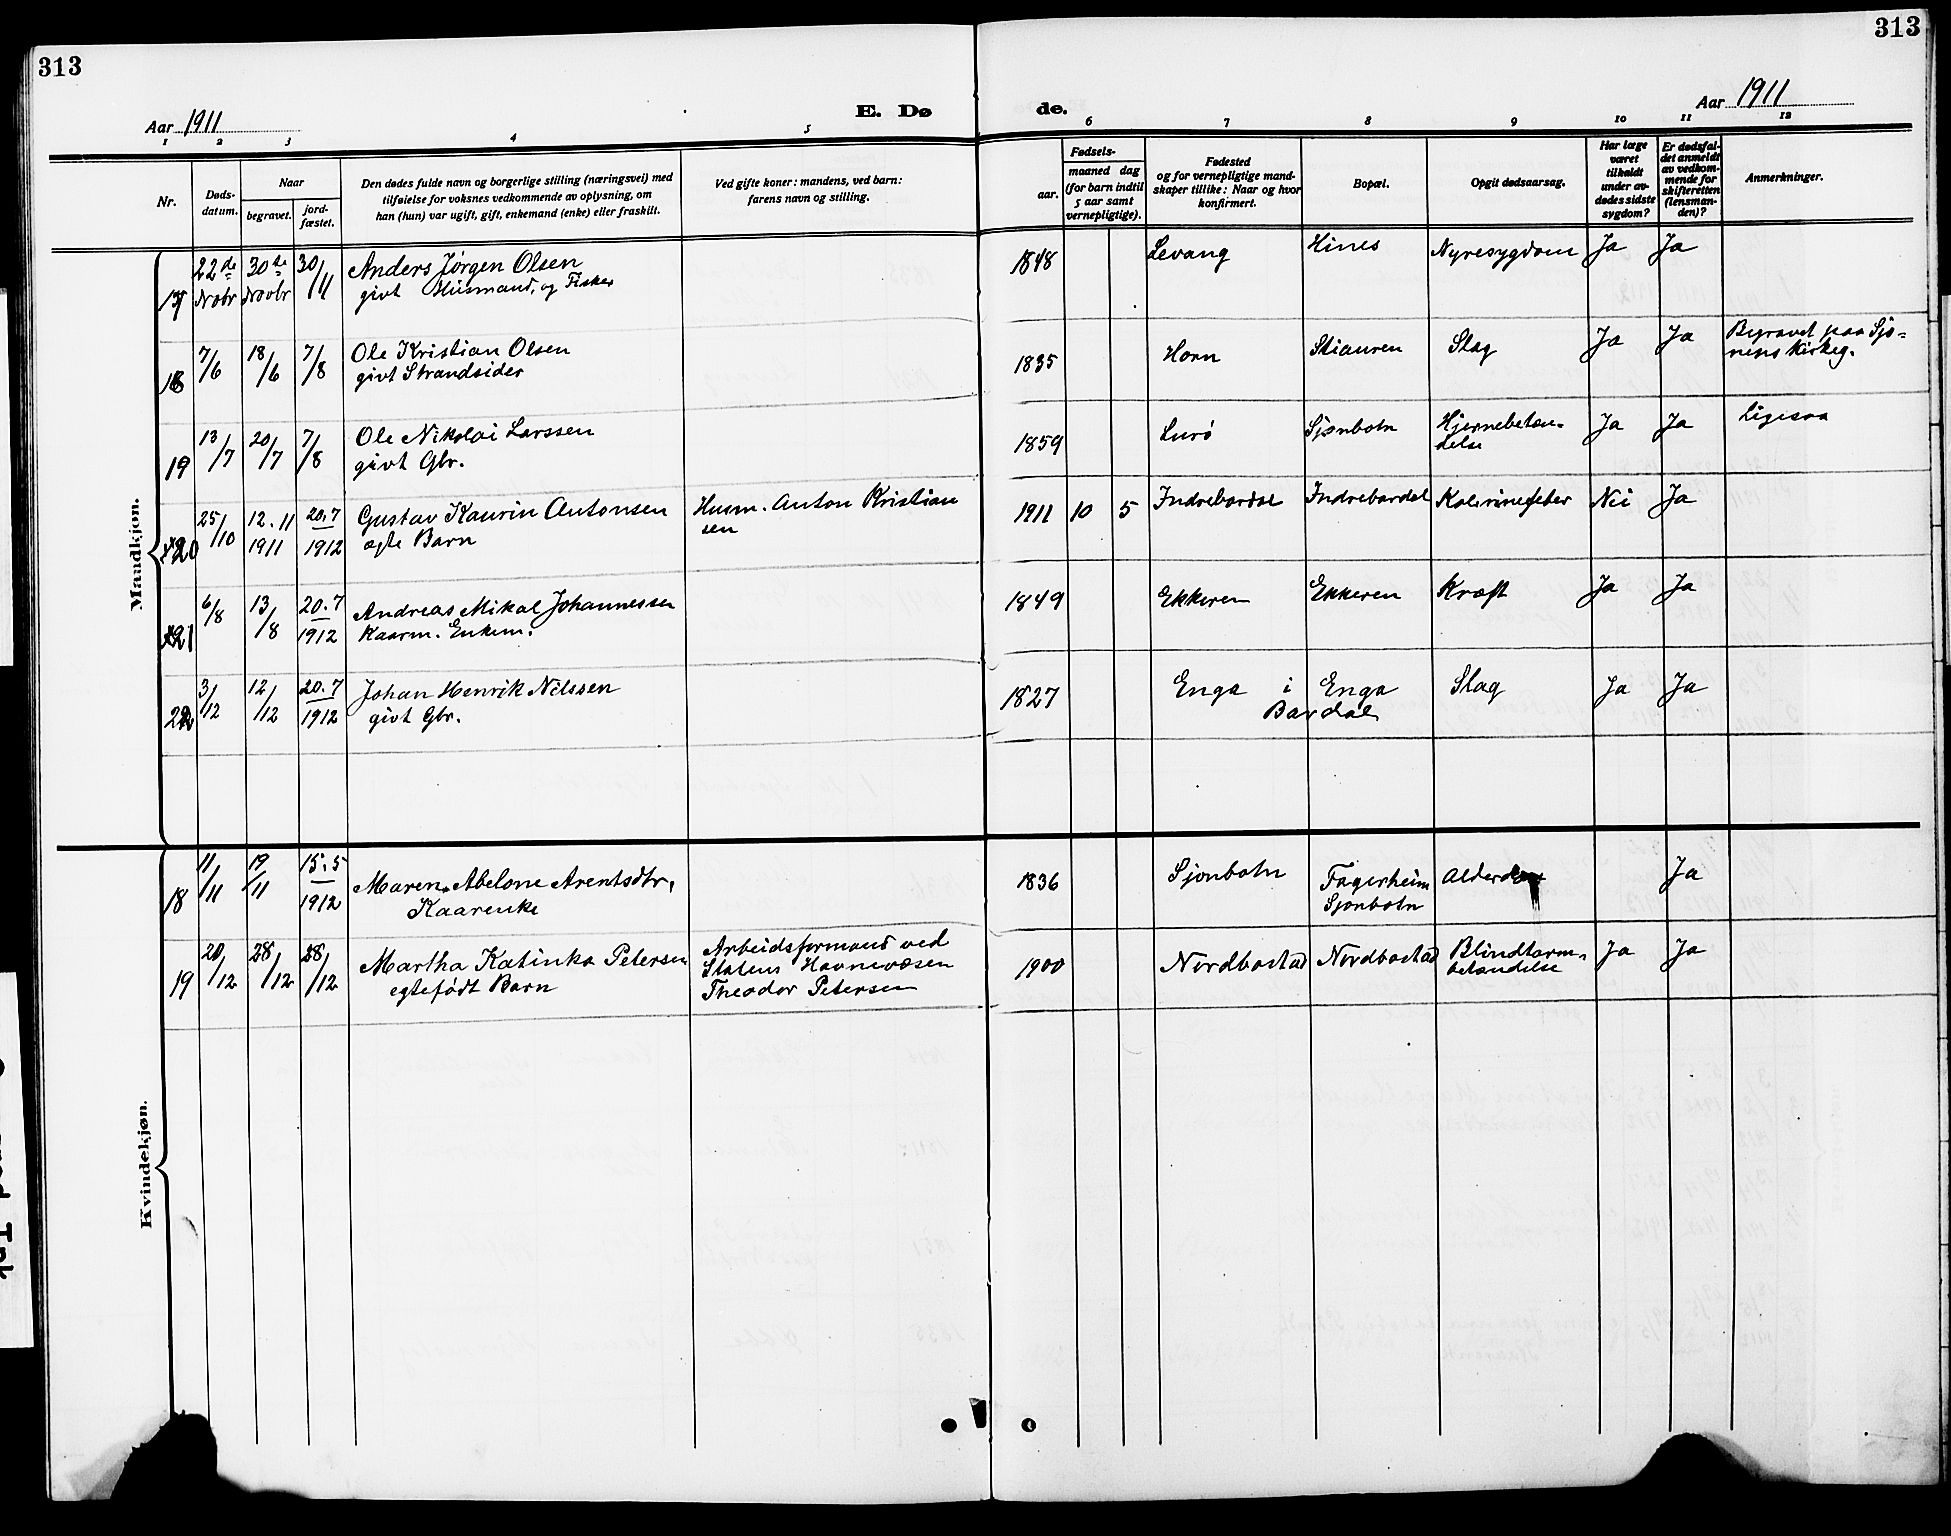 313
313
Aar 1911
E. Dø
de.
Aar 1911
1 2 3 4 5 6 7 8 9 10 11 12
Nr.
Døds-
datum.
Naar
begravet.
jord-
fæstet.
Den dødes fulde navn og borgerlige stilling (næringsvei) med
tilføielse for voksnes vedkommende av oplysning, om
han (hun) var ugift, gift, enkemand (enke) eller fraskilt.
Ved gifte koner: mandens, ved barn:
farens navn og stilling.
Fødsels-
aar.
maaned dag
(for barn indtil
5 aar samt
vernepligtige).
Fødested
og for vernepligtige mand-
skaper tillike: Naar og hvor
konfirmert.
Bopæl.
Opgit dødsaarsag.
Har læge
været
tilkaldt
under av-
dødes sidste
sygdom?
Er dødsfal-
det anmeldt
av vedkom-
mende for
skifteretten
(lensman-
den)?
Anmerkninger.
Mandkjøn.
17 22de Novbr 30te Novbr 30/11 Anders Jørgen Olsen
givt Husmand, og Fisker
1848 Levang Hines Nyresygdom Ja Ja
18 7/6 18/6 7/8 Ole Kristian Olsen
givt Strandsider
1835 Horn Stiauren Slag Ja Ja Begravet paa Sjo-
nens Kirkeg.
19 13/7 20/7 7/8 Ole Nikolai Larssen
givt Gbr.
1859 Lurö Sjonbotn Hjernebeten-
delse Ja Ja Ligesaa
20 25/10 12.11 1911 20.7 1912 Gustav Kaurin Antonsen
ægte Barn
Husm. Anton Kristian
sen
1911 10 5 Indrebardal Indrebardal Nei Ja
21 6/8 13/8 20.7 1912 Andreas Mikal Johannessen
Kaarm. Enkem.
1849 Ekkeren Ekkeren Kræft Ja Ja
22 3/12 12/12 20.7 1912 Johan Henrik Nilssen
givt Gbr.
1827 Enga i Enga
Bardal Slag Ja Ja
Kvindekjøn.
18 11/11 19/11 15.5 1912 Maren Abelone Arentsdtr,
Kaarenke
1836 Sjonbotn Fagerheim
Sjonbotn Alderdom Ja
19 20/12 28/12 28/12 Martha Katinka Petersen
egtefödt Barn
Arbeidsformand ved
Statens Havnevæsen
Theodor Petersen
1900 Nordbostad Nordbostad Blindtarm-
betændelse Ja Ja